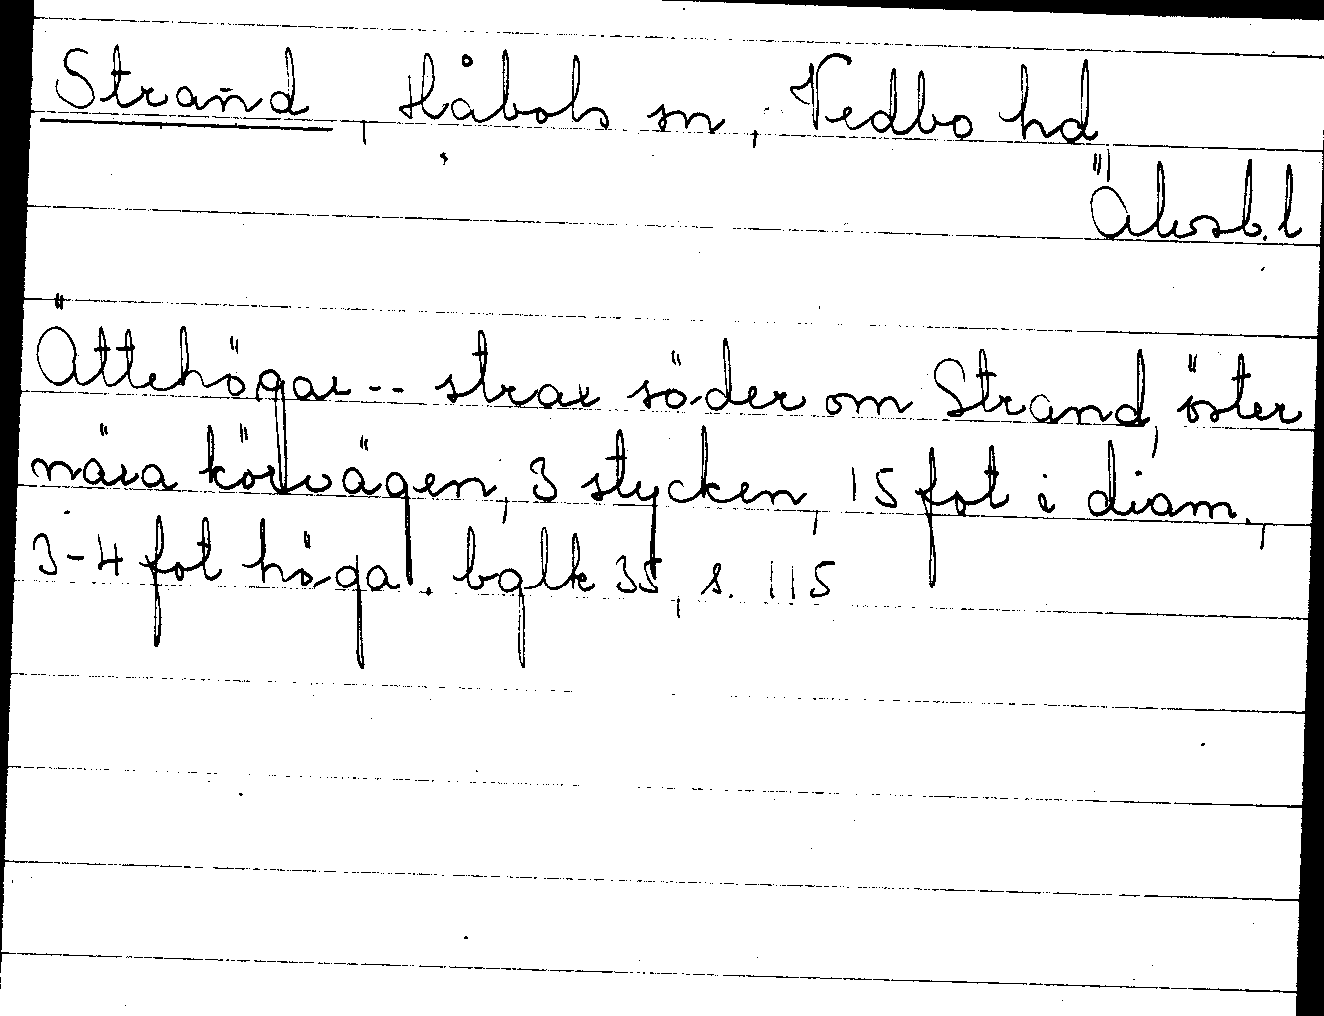 Strand, Håbols sn, Vedbo hd
Älvsb. l
Ättehögar -- strax söder om Strand, öster
nära körvägen, 3 stycken, 15 fot i diam.,
3-4 fot höga. bglk 35, s. 115